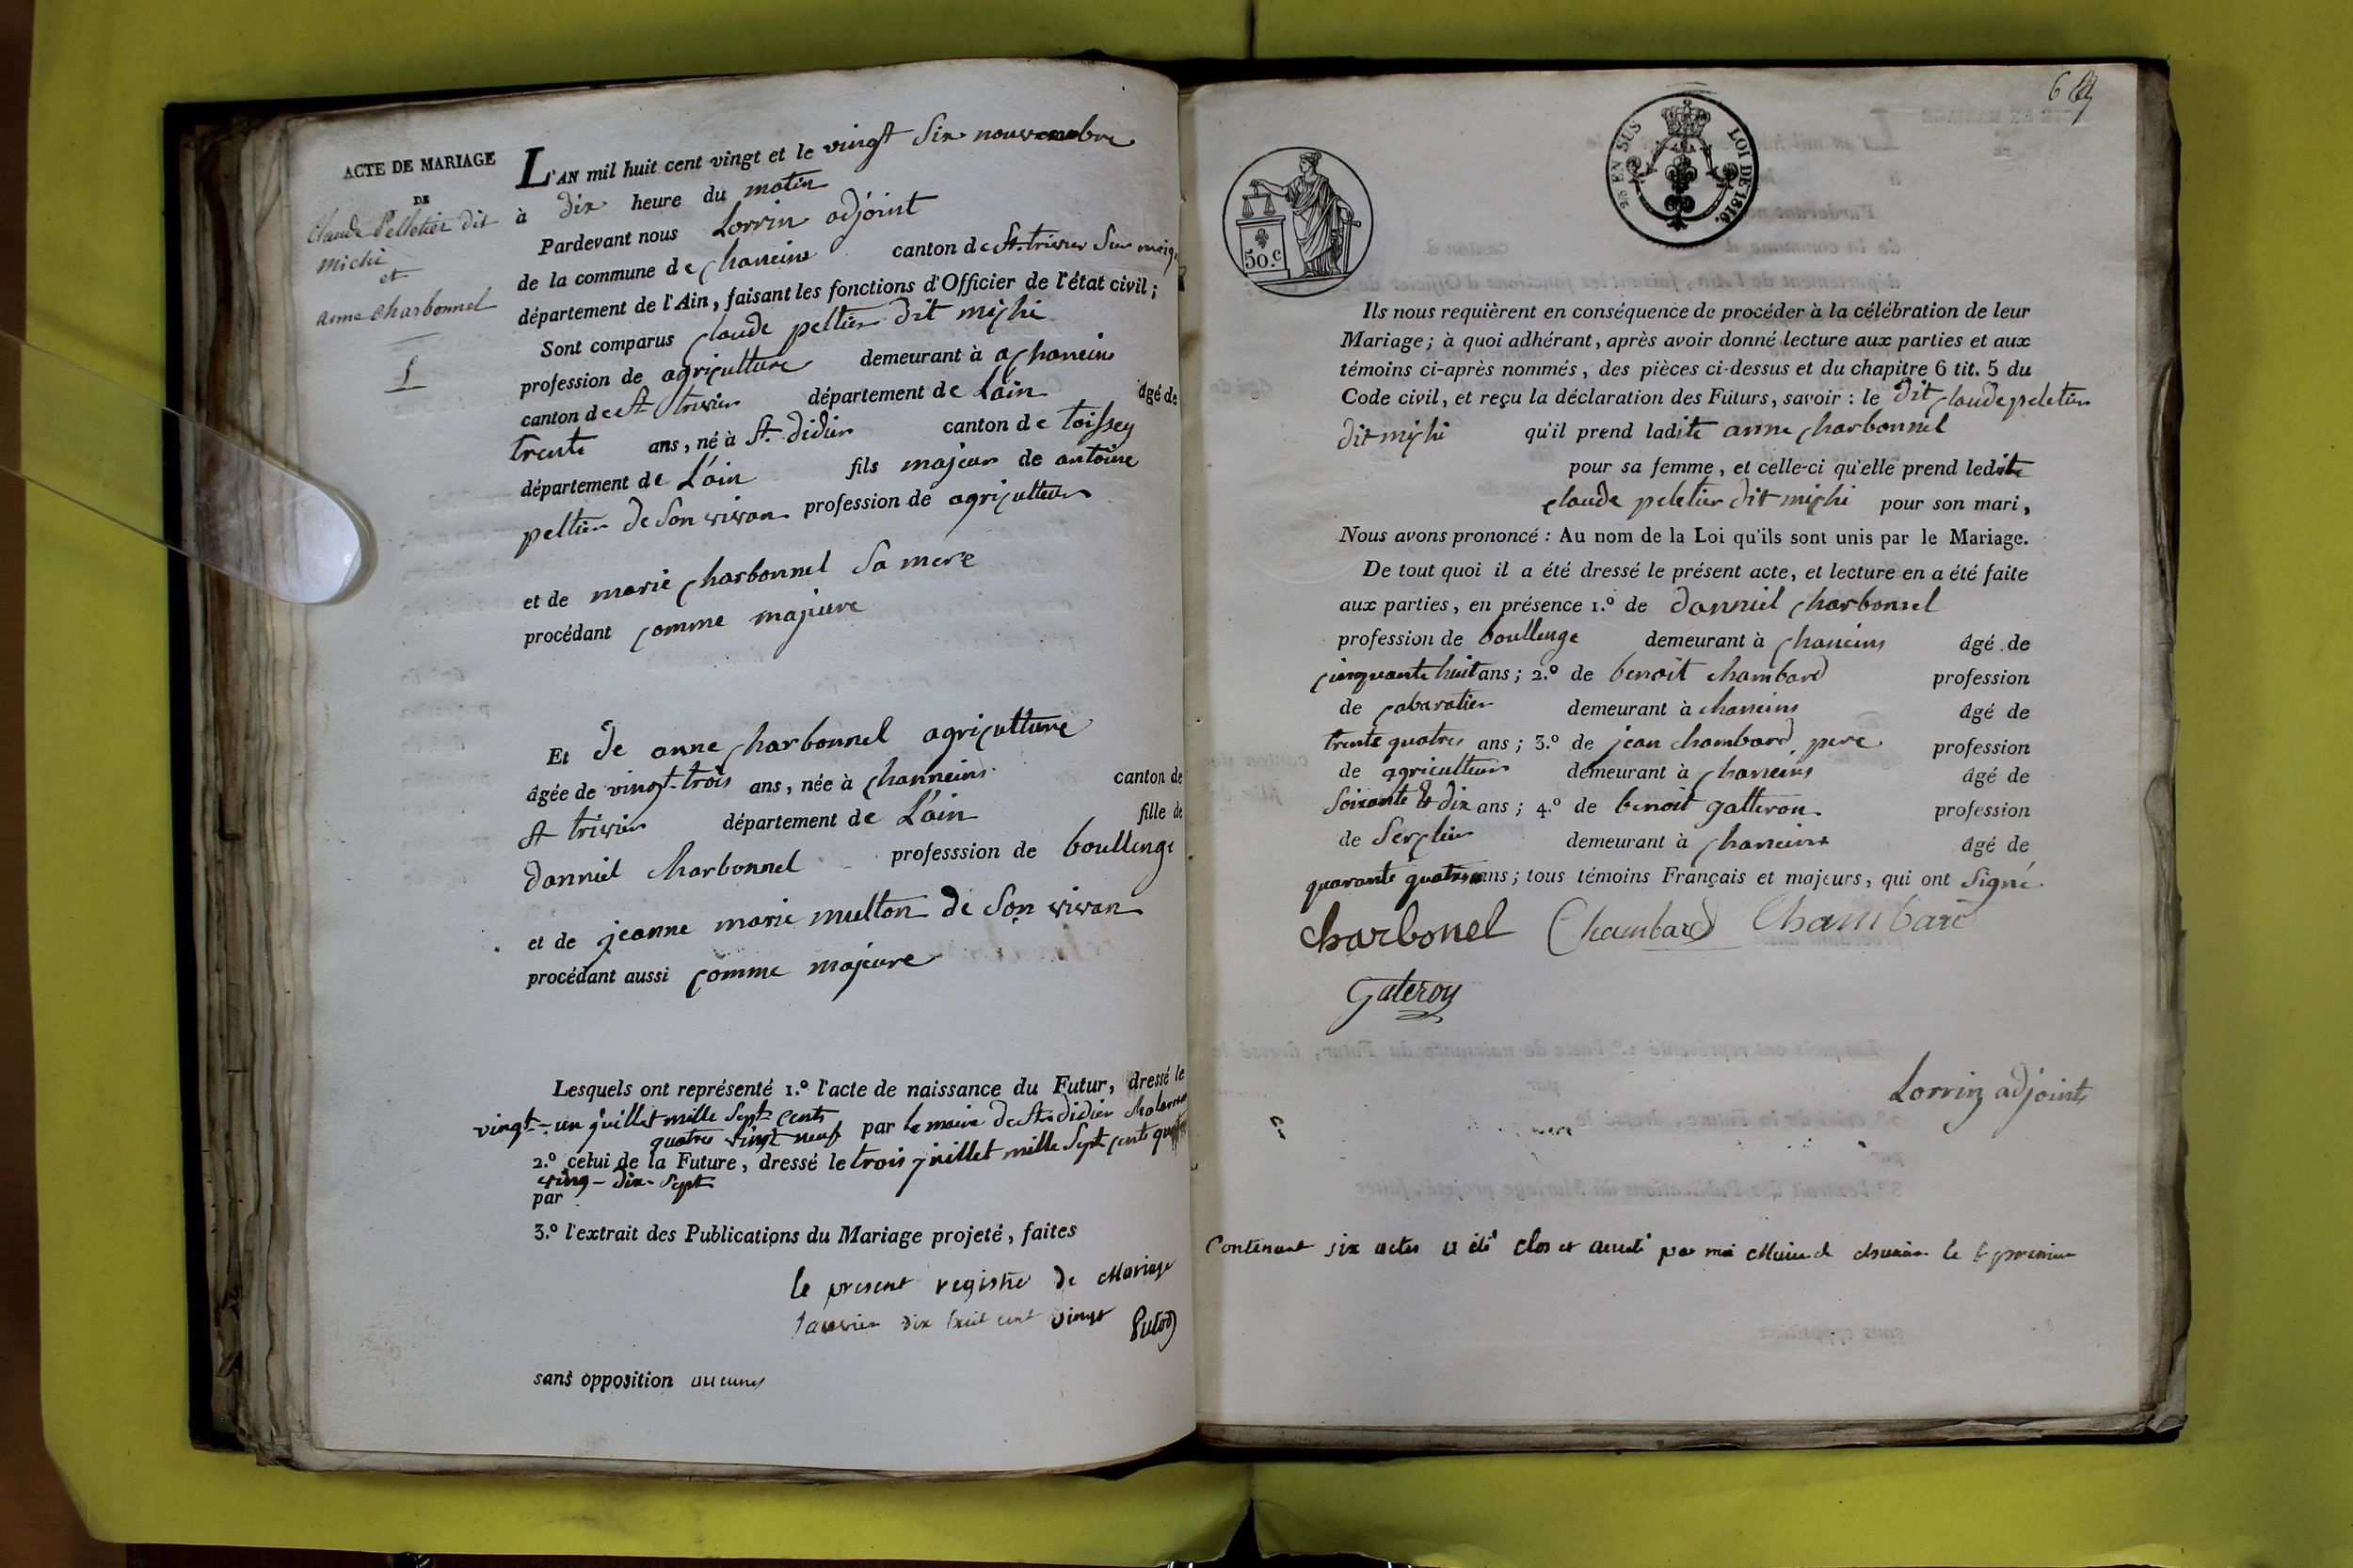 ACTE DE MARIAGE
DE
Claude Pelletier dit
michi
et
anne Charbonnel
L'AN mil huit cent vingt et le vingt six nouvembre
à dix heure du matin
Pardevant nous Lorrin adjoint
de la commune de chaneins canton de St. trivier Sur
département de l'Ain, faisant les fonctions d'Officier de l'état civil;
Sont comparus claude peltier dit michi
profession de agriculture demeurant à a chaneins
canton de St trivier département de Lain âgé de
trente ans, né à St. didier canton de toissey
département de L'ain fils majeur de antoine
peltier de son vivan profession de agriculteur
et de marie charbonnel Sa mere
procédant comme majeure
Et de anne charbonnel agriculture
âgée de vingt-trois ans, née à channeins canton de
St trivier département de L'ain fille de
danniel charbonnel professsion de boullenge
et de jeanne marie multon de Son vivan
procédant aussi comme majeure
Lesquels ont représenté 1.º l'acte de naissance du Futur, dressé le
vingt-un juillet mille Sept Cents
quatre vingt neuf par le maire de St. didier
2.º celui de la Future, dressé le trois juillet mille Sept cents quatre
ving-dix-Sept
par
3.º l'extrait des Publications du Mariage projeté, faites
le present registre de Mariage
Janvier dix huit cent vingt
sans opposition aucunes
6
EN SUS LOI DE 1816.
50.c
Ils nous requièrent en conséquence de procéder à la célébration de leur
Mariage; à quoi adhérant, après avoir donné lecture aux parties et aux
témoins ci-après nommés, des pièces ci-dessus et du chapitre 6 tit. 5 du
Code civil, et reçu la déclaration des Futurs, savoir : le dit claude peletier
dit michi qu'il prend ladite anne charbonnel
pour sa femme, et celle-ci qu'elle prend ledite
claude peletier dit michi pour son mari,
Nous avons prononcé : Au nom de la Loi qu'ils sont unis par le Mariage.
De tout quoi il a été dressé le présent acte, et lecture en a été faite
aux parties, en présence 1.º de danniel charbonnel
profession de boullenge demeurant à chaneins âgé de
cinquante huit ans; 2.º de benoit chambard profession
de cabaratier demeurant à chaneins âgé de
trente quatres ans; 3.º de jean chambard pere profession
de agriculteur demeurant à chaneins âgé de
Soixante & dix ans; 4.º de benoit gatteron profession
de demeurant à chaneins âgé de
quarante quatres ans; tous témoins Français et majeurs, qui ont Signé
Charbonel Chambard Chambard
Gateron
Lorrin adjoint
Contenant six actes a été clos et arreté par moi Maire de le premier